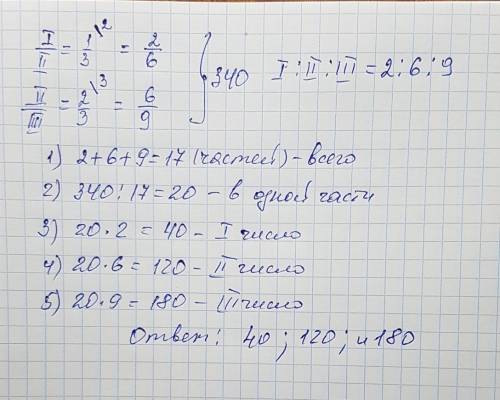 I/II = 1/3 \2 = 2/6 } 340 I : II : III = 2 : 6 : 9
II/III = 2/3 \3 = 6/9
1) 2+6+9=17 (частей) – всего
2) 340:17=20 – в одной части
3) 20·2 = 40 – I число
4) 20·6 = 120 – II число
5) 20·9 = 180 – III число
Ответ: 40 ; 120 ; и 180